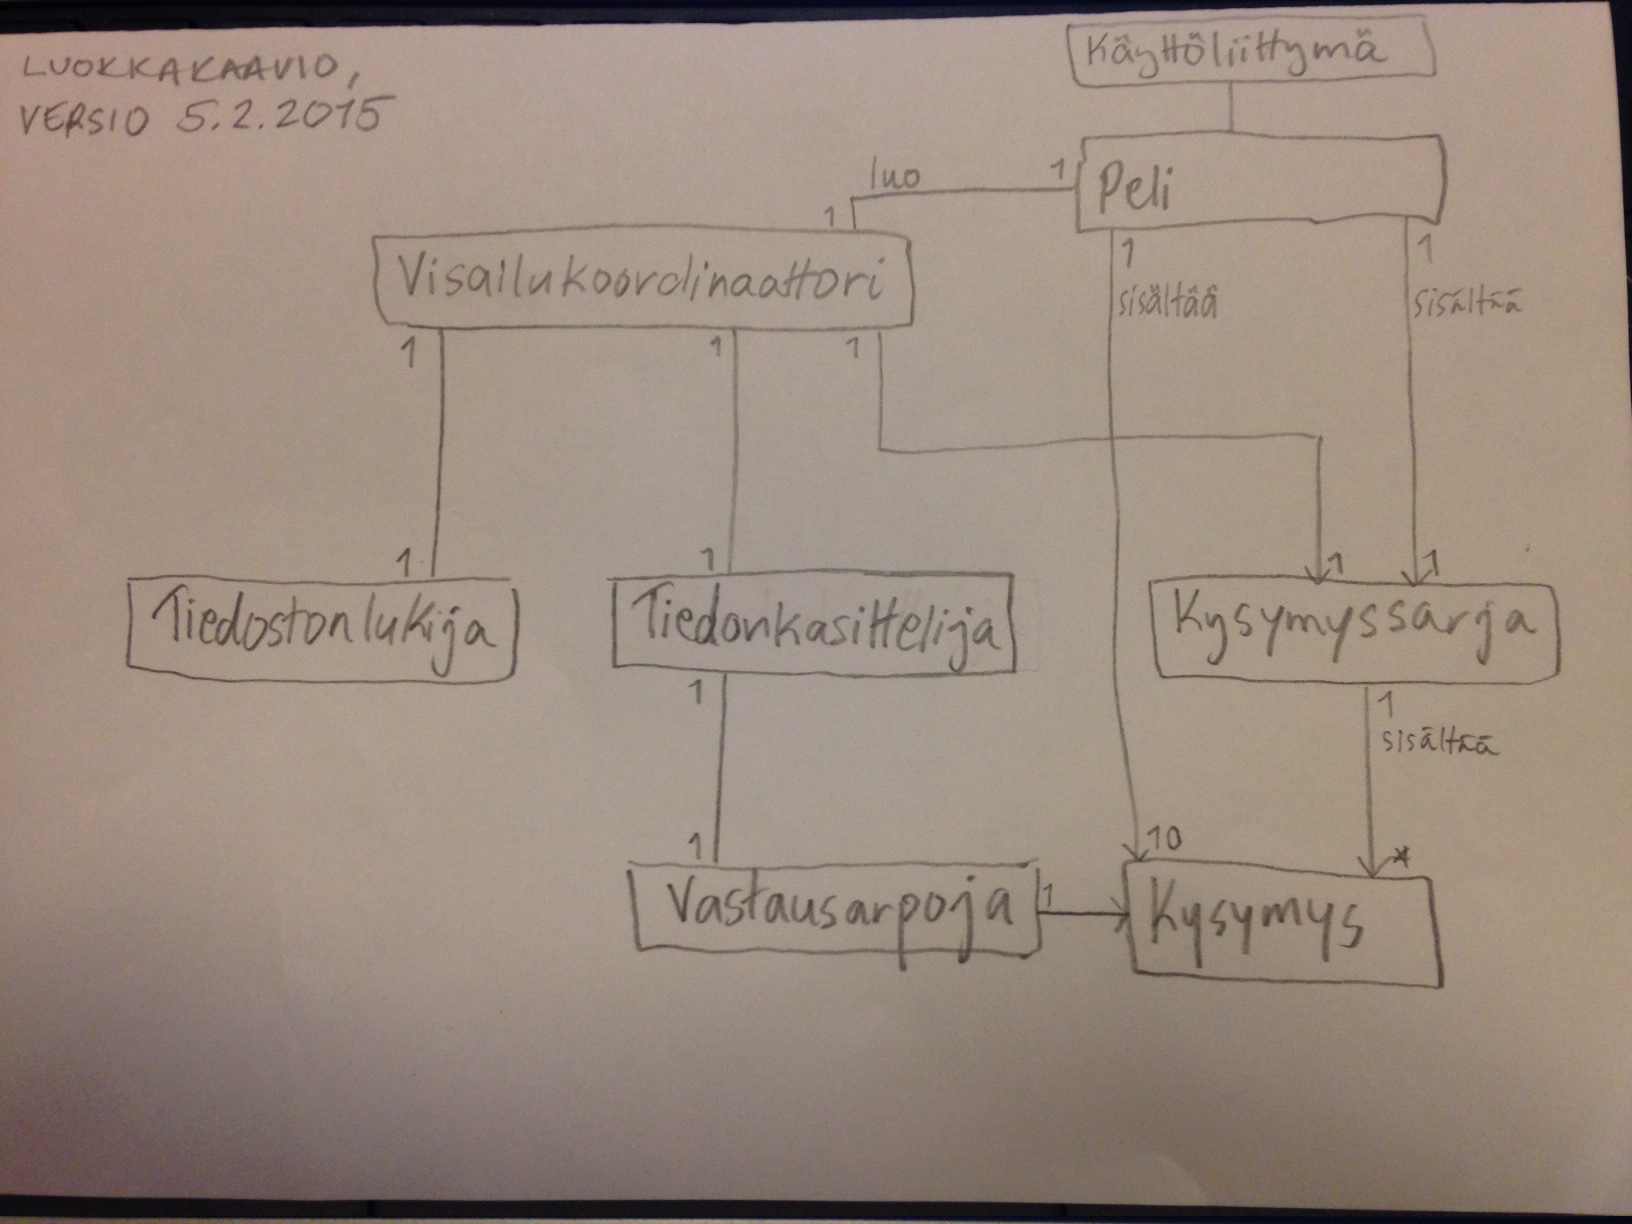 LUOKKAKAAVIO,
VERSIO 5.2.2015
Käyttöliittymä
Peli
luo
1
1
Visailukoordinaattori
1
sisältää
1
sisältää
1
1
1
1
1
1
1
Tiedostonlukija
Tiedonkasittelija
Kysymyssarja
1
1
sisältää
1
10
*
Vastausarpoja
1
Kysymys